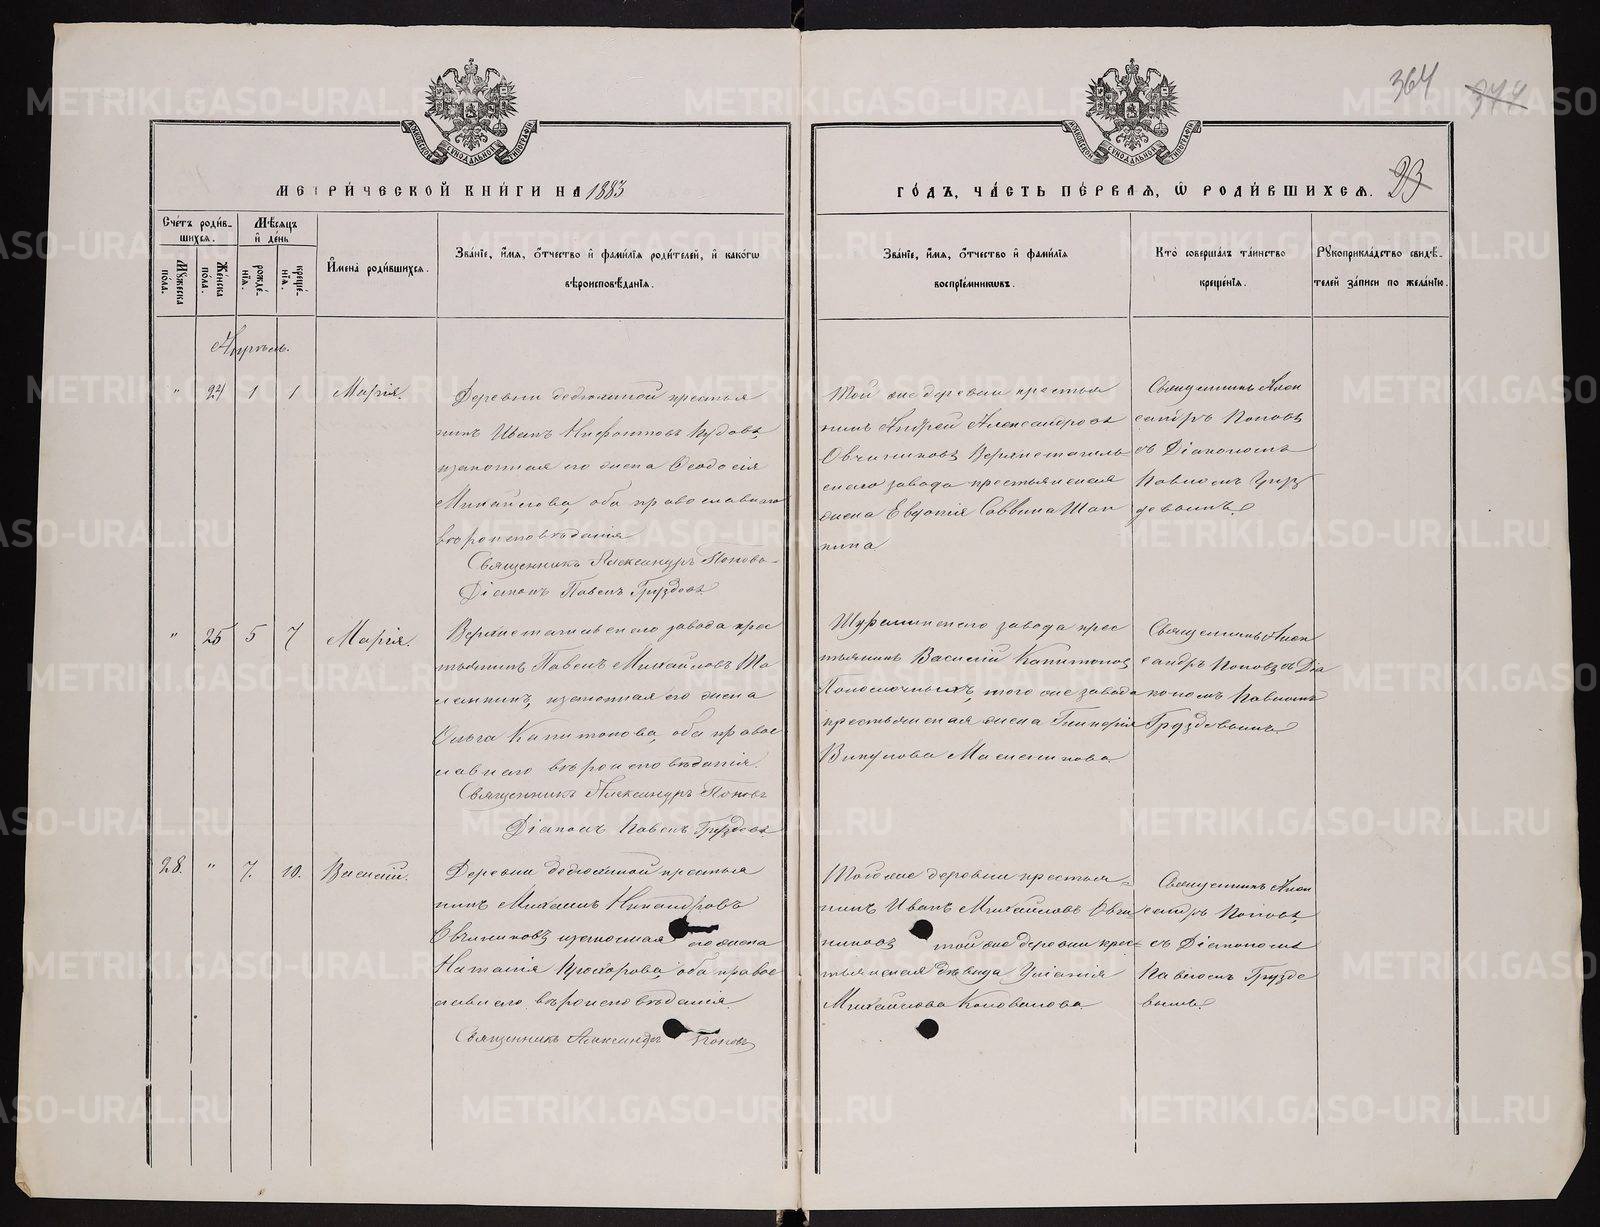 364
377
МЕТРИ́ЧЕСКОЙ КНИ́ГИ НА 1883
ГО́ДЪ, ЧА́СТЬ ПЕ́РВАЯ, Ѡ҆ РОДИ́ВШИХСЯ.
23
Сче́тъ роди́в-
шихся.
Мѣ́сяцъ
и҆ де́нь
Мꙋ́жеска
по́ла.
Же́нска
по́ла.
рожде́-
нїѧ.
креще́-
нїѧ.
И҆мена̀ роди́вшихся.
Зва́нїе, и҆́мя, ѻ҆́тчество и҆ фами́лїя роди́телей, и҆ како́гѡ
вѣроисповѣ́данїя.
Зва́нїе, и҆́мя, ѻ҆́тчество и҆ фами́лїя
воспрїе́мникѡвъ.
Кто̀ соверша́лъ та́инство
креще́нїя.
Рꙋкоприкла́дство свидѣ́-
телей за́писи по жела́нїю.
Апрѣль.
" 24 1 1 Марія.
Деревни Дедюхиной крестья
нинъ Иванъ Нифонтовъ Кудовъ,
изаконная его жена Ѳеодосія
Михайлова, оба православнаго
вѣроисповѣданія
Священникъ Александръ Поповъ
Діаконъ Павелъ Груздевъ
Той же деревни крестья
нинъ Андрей Александровъ
Овчинниковъ Верхнетагиль
скаго завода крестьянская
жена Евдокія Саввина Шап
кина
Священникъ Алек
сандръ Поповъ
съ Діакономъ
Павломъ Груз
девымъ
" 25 5 7 Марія.
Верхнетагильскаго завода крес
тьянинъ Павелъ Михайловъ
изаконная его жена
Ольга Капитонова, оба правос
лавнаго вѣроисповѣданія.
Священникъ Александръ Поповъ
Діаконъ Павелъ Груздевъ
Шуралинскаго завода крес
тьянинъ Василій Капитоновъ
того же завода
крестьянская жена Гликерія
Викулова Масленикова
Священникъ Алек
сандръ Поповъ съ Діа
кономъ Павломъ
Груздевымъ
28. " 7. 10. Василій.
Деревни Дедюхиной крестья
нинъ Михаилъ Никандровъ
Овчинниковъ изаконная его жена
Наталія Прохорова оба правос
лавнаго вѣроисповѣданія
Священникъ Александръ Поповъ
Той же деревни крестья=
нинъ Иванъ Михайловъ Овчи
никовъ той же деревни крес=
тьянская дѣвица Уліанія
Михайлова Коновалова
Священникъ Алек
сандръ Поповъ,
съ Діакономъ
Павломъ Грузде
вымъ